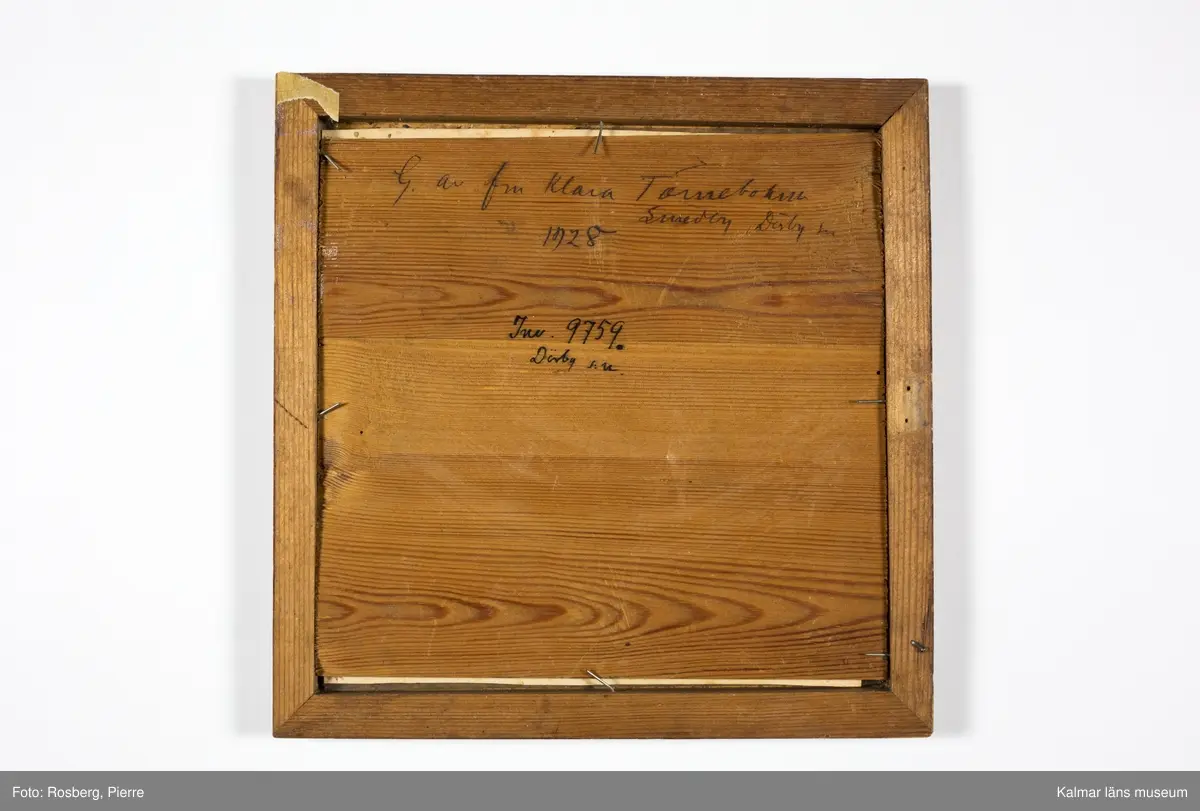 G. av fru Klara Törnebohm
Smedby, Dörby sn
1928
Inv. 9759.
Dörby sn.
Foto: Rosberg, Pierre
Kalmar läns museum